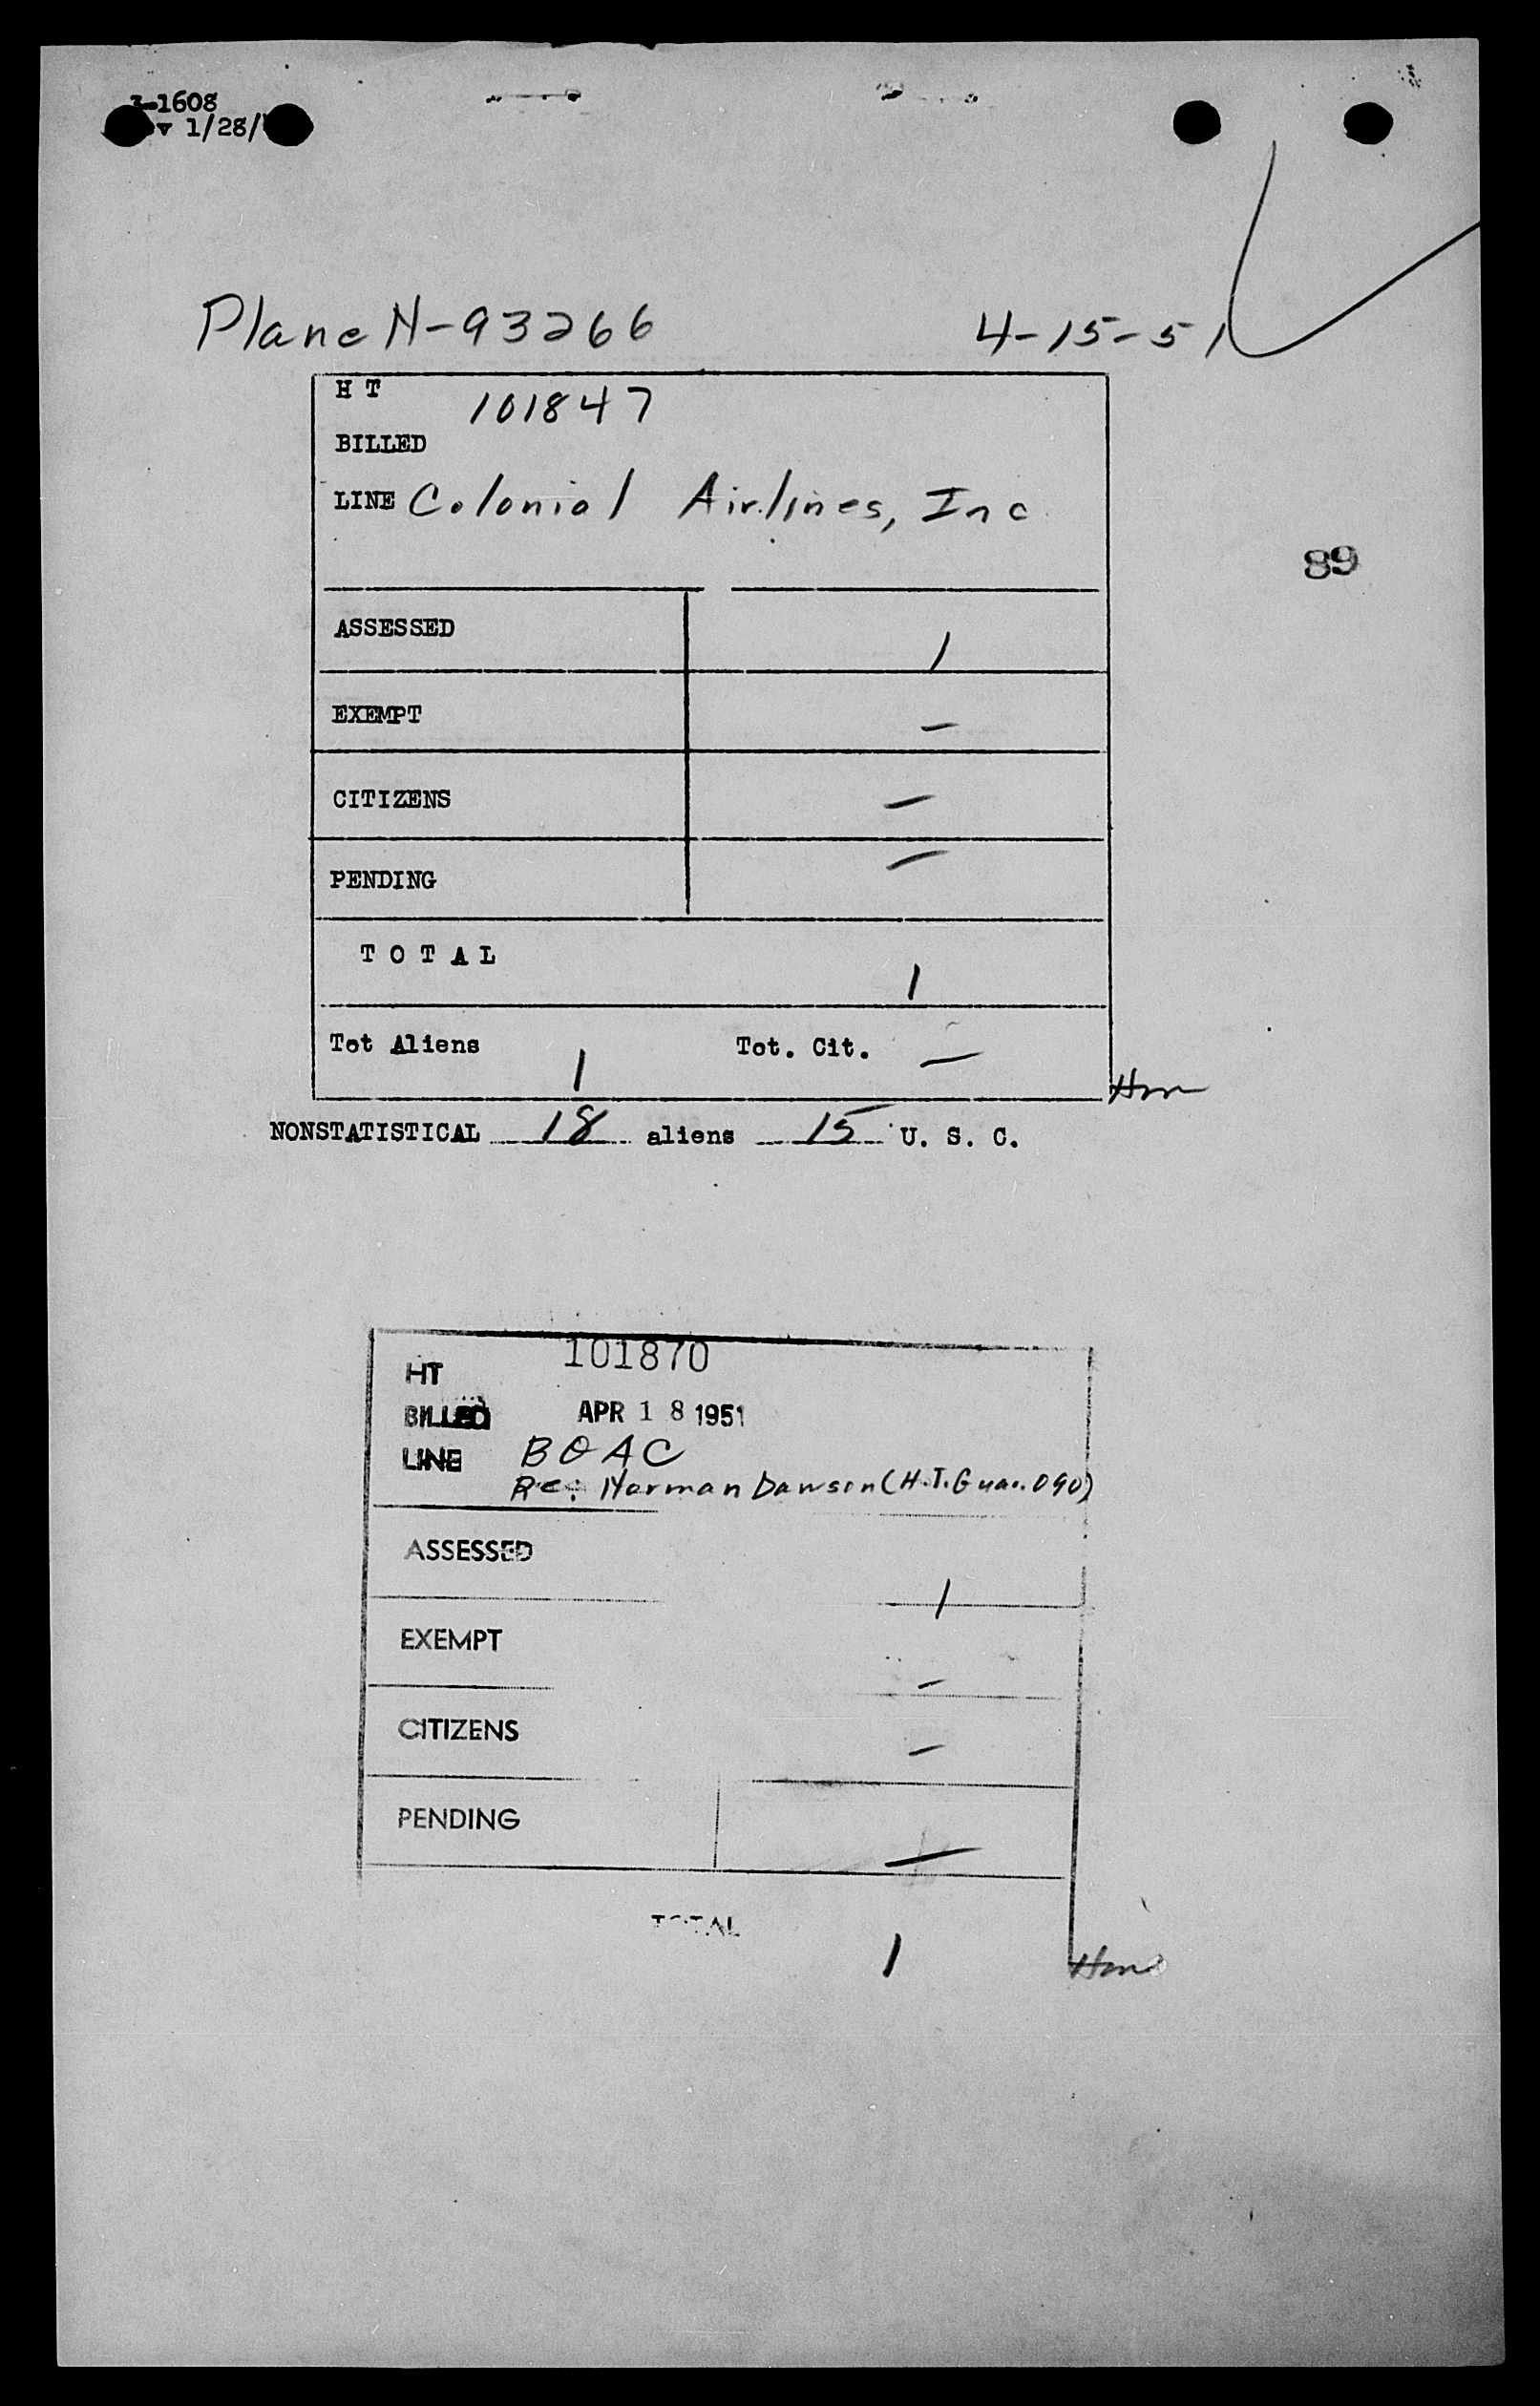 -1608
v 1/28/
Plane N-93266 4-15-51
H T 101847
BILLED
LINE Colonial Airlines, Inc
89
ASSESSED 1
EXEMPT —
CITIZENS —
PENDING —
T O T A L 1
Tot Aliens 1 Tot. Cit. —
NONSTATISTICAL 18 aliens 15 U. S. C.
HT 101870
BILLED APR 18 1951
LINE BOAC
Re: Norman Dawson (H.T. Guar. 090)
ASSESSED 1
EXEMPT —
CITIZENS —
PENDING —
TOTAL 1